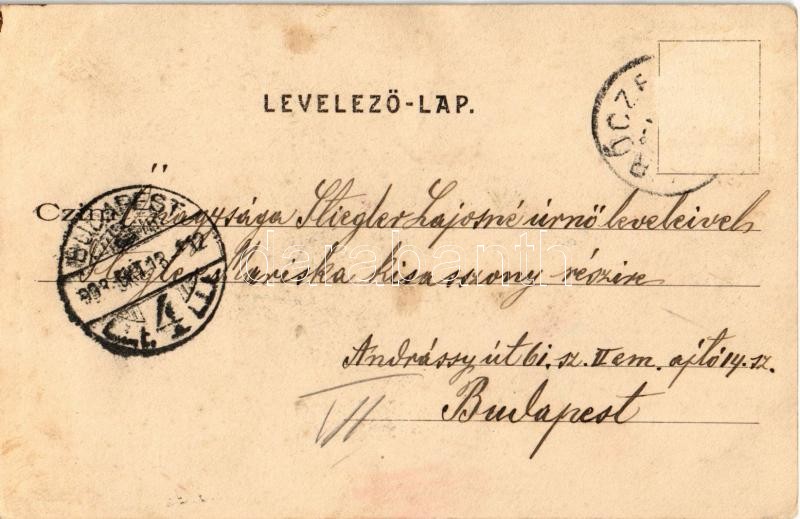 LEVELEZŐ-LAP.
RÓCZE
Czím
Ő nagysága Stiegler Lajosné úrnő leveleivel
Stiegler Mariska kisasszony részire
BUDAPEST
4
Andrássy út 61. sz. II em. ajtó 14. sz.
Budapest
VII
darabanth